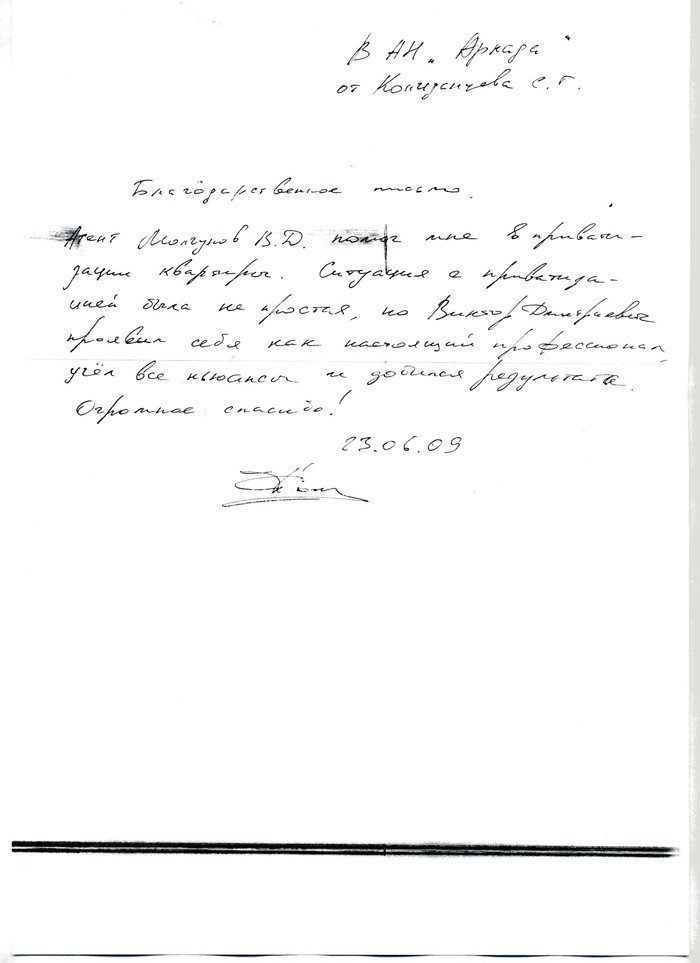 В АН „Аркада“
от Колиданцева С. Г.
Благодарственное письмо.
Агент Молгунов В.Д. помог мне в привати-
зации квартиры. Ситуация с приватиза-
цией была не простая, но Виктор Дмитриевич
проявил себя как настоящий профессионал,
учёл все ньюансы и добился результата.
Огромное спасибо!
23.06.09